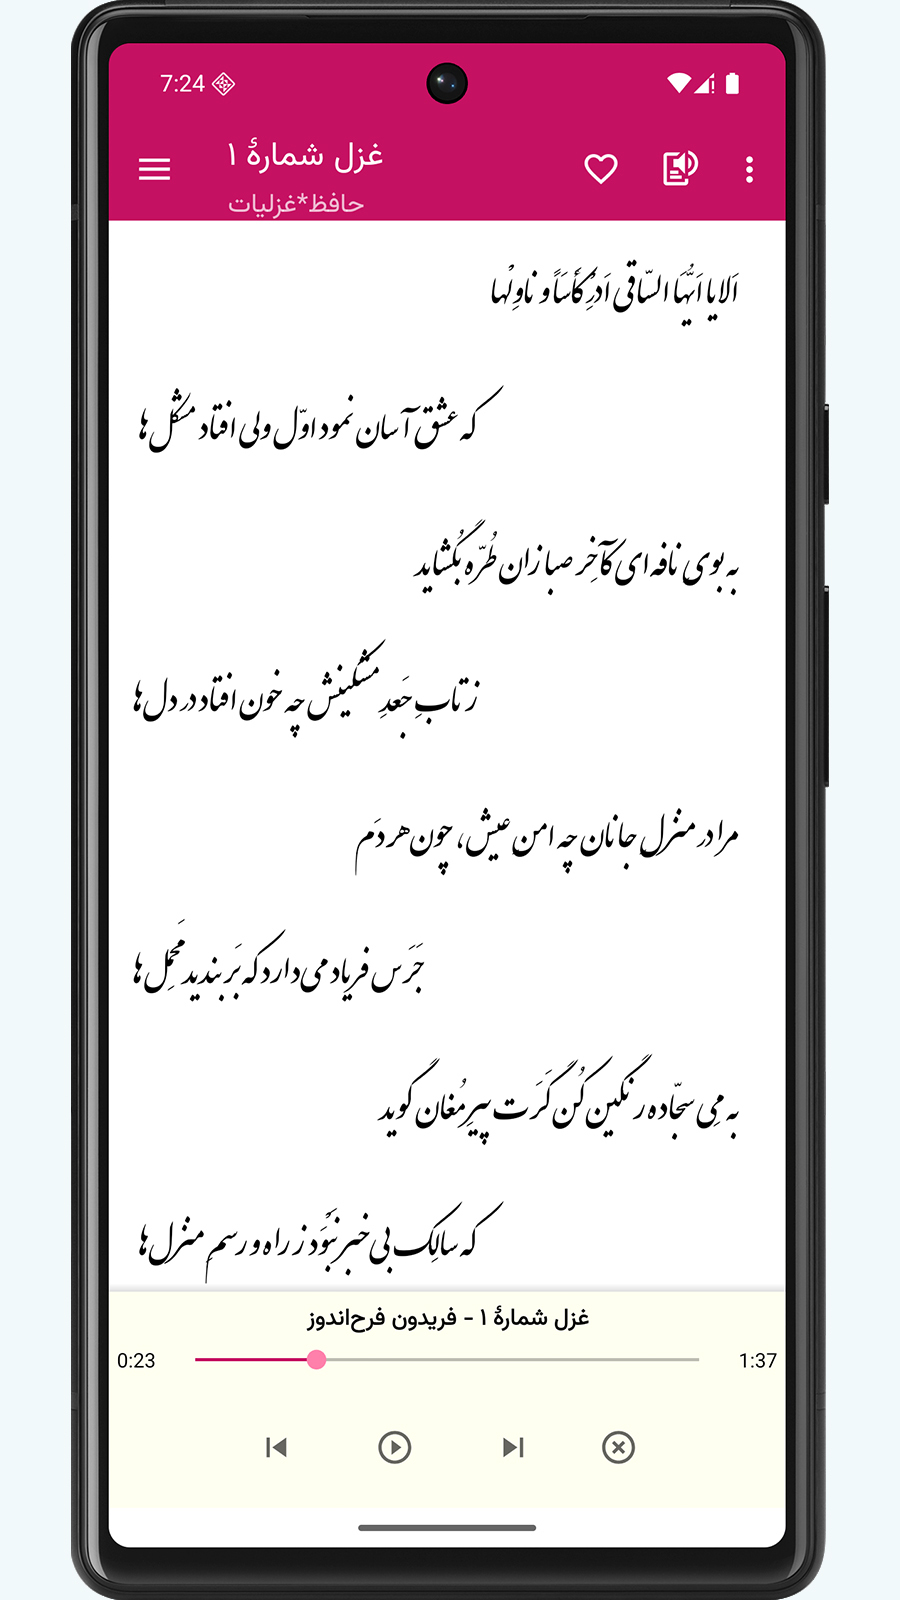 7:24
غزل شمارهٔ ۱
حافظ*غزلیات
اَلا یا اَیُّهَا السّاقی اَدِرْ کَأسَاً و ناوِلْها
که عشق آسان نمود اوّل ولی افتاد مشکل‌ها
به بوی نافه‌ای کآخِر صبا زان طُرّه بُگشاید
ز تابِ جَعدِ مشکینش چه خون افتاد در دل‌ها
مرا در منزل جانان چه امن عیش، چون هر دَم
جَرَس فریاد می‌دارد که بَربندید مَحمِل‌ها
به مِی سجّاده رنگین کُن گَرَت پیرِ مُغان گوید
که سالِک بی‌خبر نَبْوَد ز راه و رسمِ منزل‌ها
غزل شمارهٔ ۱ - فریدون فرح‌اندوز
0:23
1:37